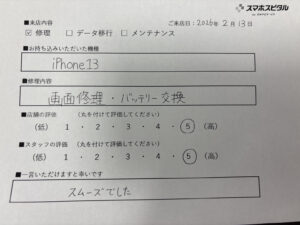 スマホスピタル
■来店内容
ご来店日：2026年2月13日
☑ 修理 □ データ移行 □ メンテナンス
■お持ち込みいただいた機種
iPhone13
■修理内容
画面修理・バッテリー交換
■店舗の評価 （丸を付けて評価してください）
（低） 1 ・ 2 ・ 3 ・ 4 ・ 5 （高）
■スタッフの評価 （丸を付けて評価してください）
（低） 1 ・ 2 ・ 3 ・ 4 ・ 5 （高）
■一言いただけますと幸いです
スムーズでした